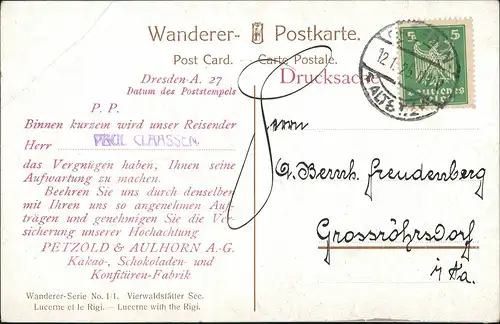 Wanderer- Postkarte.
Post Card. — Carte Postale.
Dresden-A. 27
Datum des Poststempels
Drucksache
P. P.
Binnen kurzem wird unser Reisender
Herr PAUL CLAASSEN
das Vergnügen haben, Ihnen seine
Aufwartung zu machen.
Beehren Sie uns durch denselben
mit Ihren uns so angenehmen Auf-
trägen und genehmigen Sie die Ver-
sicherung unserer Hochachtung
PETZOLD & AULHORN A.-G.
Kakao-, Schokoladen- und
Konfitüren-Fabrik.
Wanderer-Serie No. 1/1. Vierwaldstätter See.
Lucerne et le Rigi. — Lucerne with the Rigi.
5 5
Deutsches
12.1.
ALTST.
Herrn
G. Bernh. Freudenberg
Grossröhrsdorf
i/Sa.